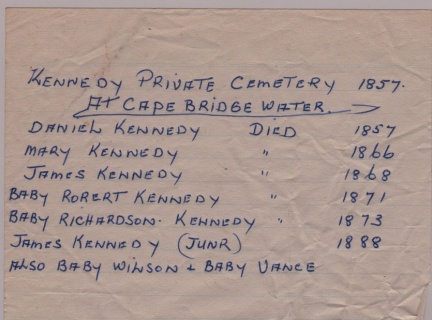 KENNEDY PRIVATE CEMETERY 1857.
AT CAPE BRIDGE WATER.
DANIEL KENNEDY DIED 1857
MARY KENNEDY " 1866
JAMES KENNEDY " 1868
BABY ROBERT KENNEDY " 1871
BABY RICHARDSON. KENNEDY " 1873
JAMES KENNEDY (JUNR) 1888
ALSO BABY WILSON + BABY VANCE